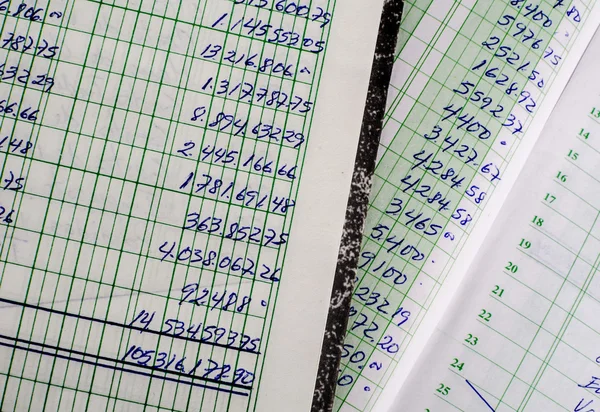 6.806.∞
787.75
632.29
66.66
.148
.75
26
1.145.553.05
13.216.806.∞
1.317.787.75
8.894.632.29
2.445.166.66
1.781.691.48
363.852.75
4.038.067.26
92.488.
14 534593.75
105316.178.30
8,400.
5576.75
2521.50
1628.92
5592.37
4400.
3427.67
4284.58
4284.58
3465.∞
5400.
9100.
232.19
972.20
50.∞
0.
13
14
15
16
17
18
19
20
21
22
23
24
25